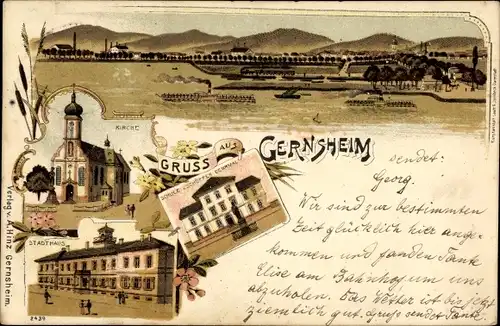 GRUSS AUS GERNSHEIM
KIRCHE
STADTHAUS
Verlag v. A. Hinz Gernsheim.
2439
sendet:
Georg.
Wir sind zur bestimmten
Zeit glücklich hier ange-
kommen und fanden Tante
Elise am Bahnhof um uns
abzuholen. Das Wetter ist bis jetzt
ziemlich gut. Gruß sendet Tante.